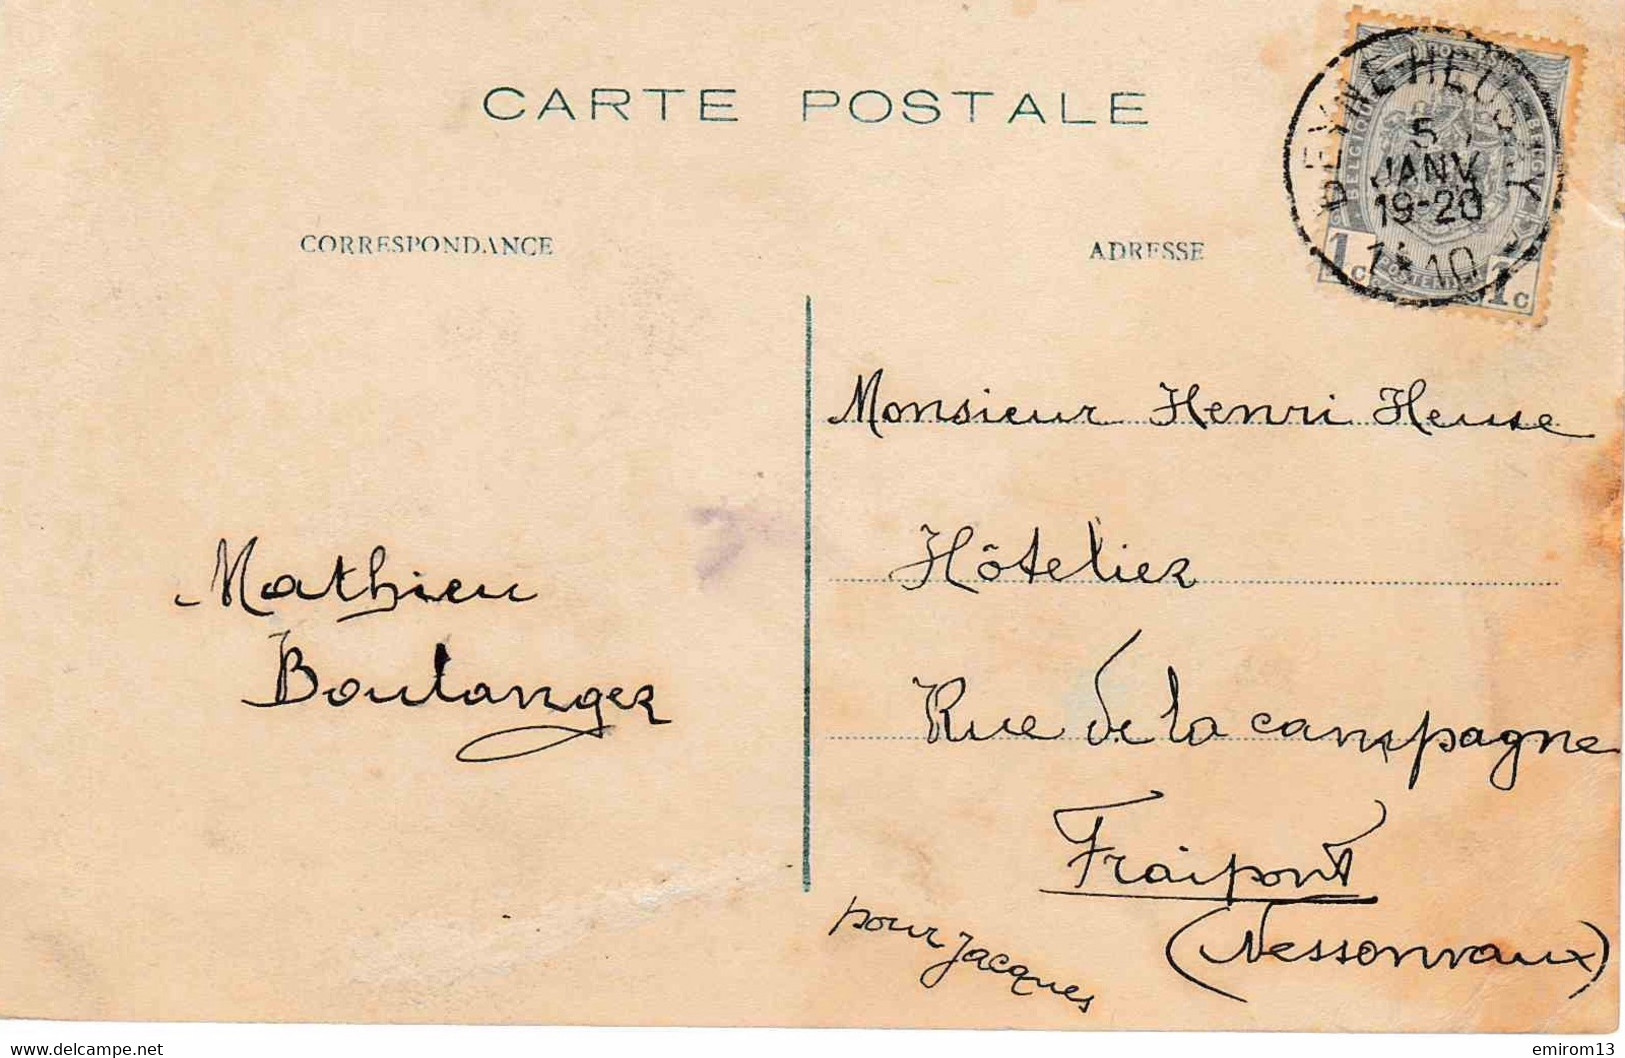 CARTE POSTALE
CORRESPONDANCE
ADRESSE
BEYNE-HEUSAY
5
JANV
19-20
1910
BELGIQUE
POSTERIJEN
1c
1c
Monsieur Henri Heuse
Hôtelier
Rue de la campagne
Fraipont
(Nessonvaux)
pour Jacques
Mathieu
Boulanger
www.delcampe.net
emirom13